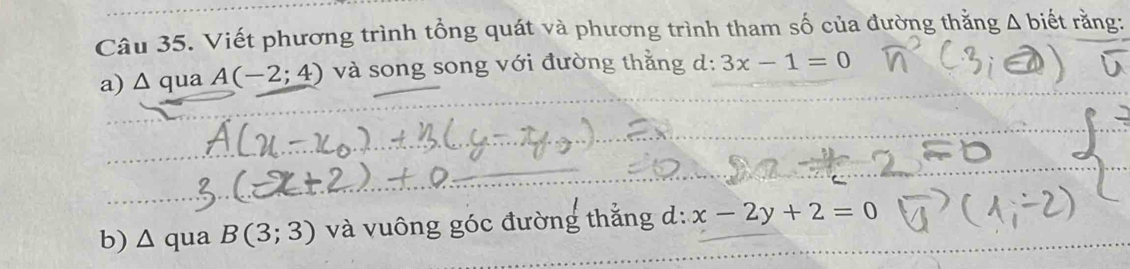 Câu 35. Viết phương trình tổng quát và phương trình tham số của đường thẳng Δ biết rằng:
a) Δ qua A(−2; 4) và song song với đường thẳng d: 3x − 1 = 0 n (3;
A(x-x₀) + B(y-y₀) =
3.(x+2) + 0 =0 2 =0
b) Δ qua B(3; 3) và vuông góc đường thẳng d: x − 2y + 2 = 0 u (1;-2)